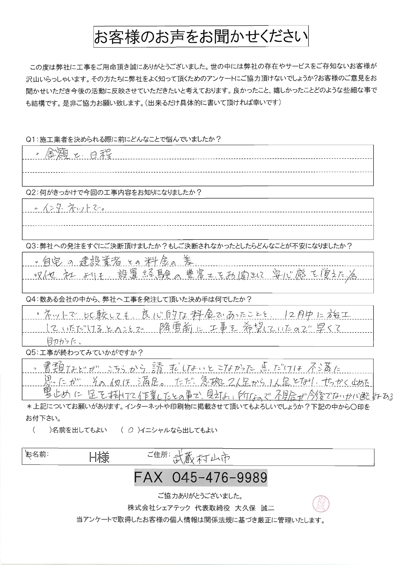 お客様のお声をお聞かせください
この度は弊社に工事をご用命頂き誠にありがとうございました。世の中には弊社の存在やサービスをご存知ないお客様が
沢山いらっしゃいます。その方たちに弊社をよく知って頂くためのアンケートにご協力頂けないでしょうか?お客様のご意見をお
聞かせいただき今後の活動に反映させていただきたいと考えております。良かったこと、嬉しかったことどのような些細な事で
も結構です。是非ご協力お願い致します。(出来るだけ具体的に書いて頂ければ幸いです)
Q1:施工業者を決められる際に前にどんなことで悩んでいましたか?
・金額と日程
Q2:何がきっかけで今回の工事内容をお知りになりましたか?
・インターネットで。
Q3:弊社への発注をすぐにご決断頂けましたか?もしご決断されなかったとしたらどんなことが不安になりましたか?
・自宅の建設業者との料金の差
・又他社よりも、設置経験の豊富さをお聞きして安心感を頂いた為
Q4:数ある会社の中から、弊社へ工事を発注して頂いた決め手は何でしたか?
・ネットで比較しても、良心的な料金であったことと、12月中に施工
していただけるとのことで 降雪前に工事を希望していたので早くて
助かった。
Q5:工事が終わってみていかがですか?
・書類などがこちらから請求しないとこなかった点だけは不満に
思ったが その他は満足。ただ、急拠2人から1人となり、
雪止めに足を掛けて作業したとの事で 見えない所なので不具合が今後でないか心配はある
*上記についてお願いがあります。インターネットや印刷物に掲載させて頂いてもよろしいでしょうか?下記の中から〇印をお付下さい。
( )名前を出してもよい (○)イニシャルなら出してもよい
お名前: H様 ご住所: 武蔵村山市
FAX 045-476-9989
ご協力ありがとうございました。
株式会社シェアテック 代表取締役 大久保 誠二
当アンケートで取得したお客様の個人情報は関係法規に基づき厳正に管理いたします。